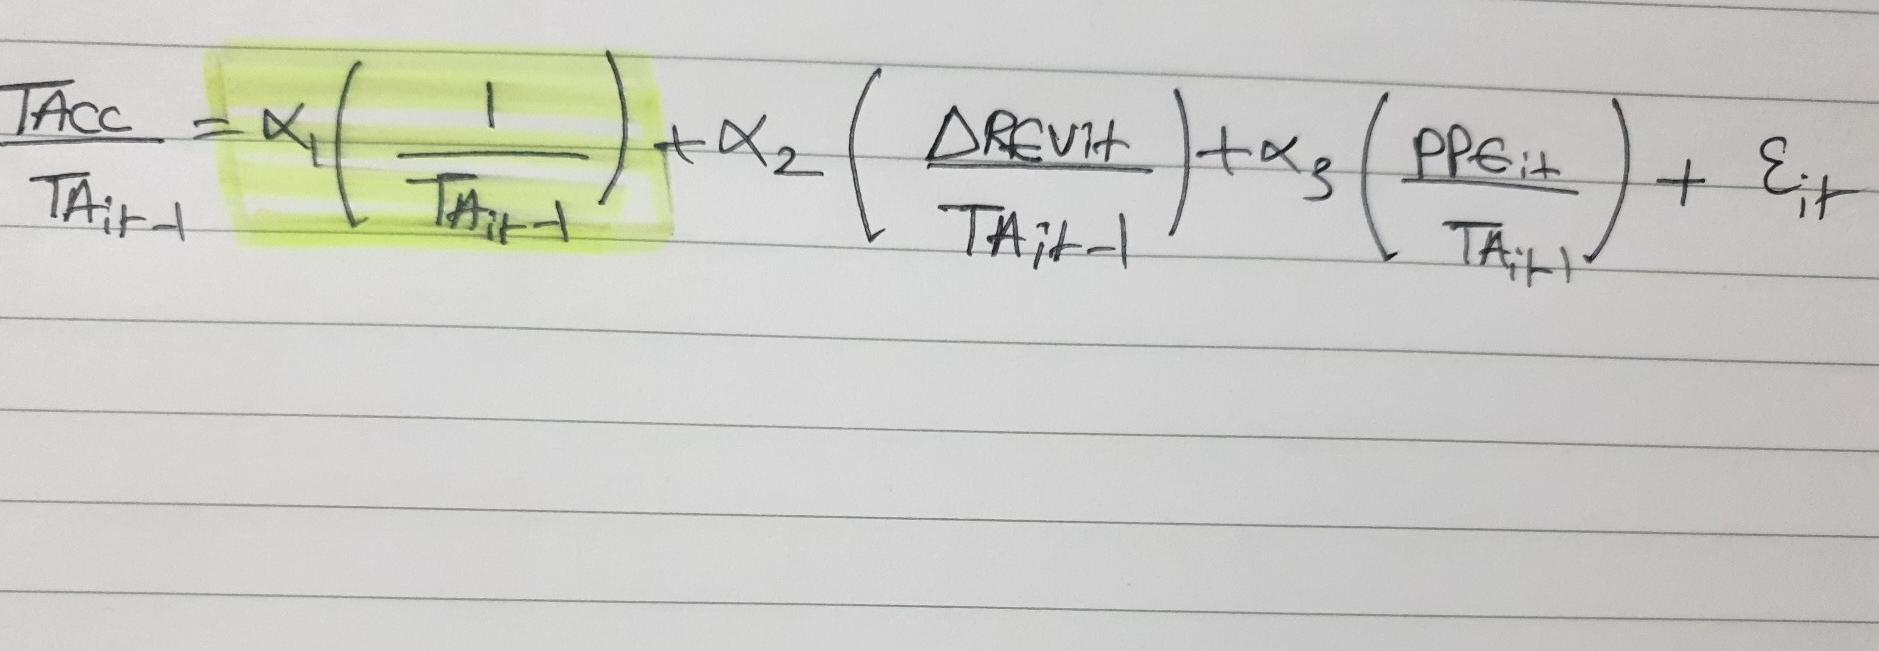 TACC / TAit-1 = α1 ( 1 / TAit-1 ) + α2 ( ΔREVit / TAit-1 ) + α3 ( PPEit / TAit-1 ) + εit